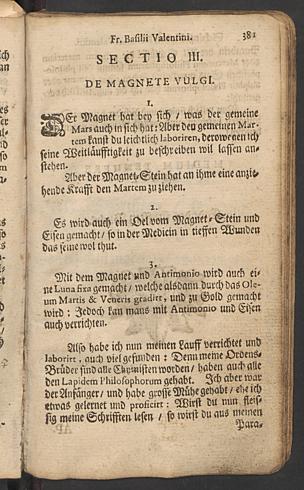 Fr. Basilii Valentini. 381
SECTIO III.
DE MAGNETE VULGI.
1.
DEr Magnet hat bey sich / was der gemeine
Mars auch in sich hat: Aber den gemeinen Mar-
tem kanst du leichtlich laboriren, derowegen ich
seine Weitläufftigkeit zu beschreiben wil lassen an-
stehen.
Aber der Magnet-Stein hat an ihme eine anzie-
hende Krafft den Martem zu ziehen.
2.
Es wird auch ein Oel vom Magnet-Stein und
Eisen gemacht / so in der Medicin in tieffen Wunden
das seine wol thut.
3.
Mit dem Magnet und Antimonio wird auch ei-
ne Luna fixa gemacht / welche alsdann durch das Ole-
um Martis & Veneris gradirt, und zu Gold gemacht
wird: Jedoch kan mans mit Antimonio und Eisen
auch verrichten.
Also habe ich nun meinen Lauff verrichtet und
laborirt, auch viel gefunden: Denn meine Ordens-
Brüder sind alle Chymisten worden / haben auch alle
den Lapidem Philosophorum gehabt. Ich aber war
der Anfänger / und habe grosse Mühe gehabt / ehe ich
etwas gelernet und proficirt: Wirst du nun fleis-
sig meine Schrifften lesen / so wirst du aus meinen
Para-